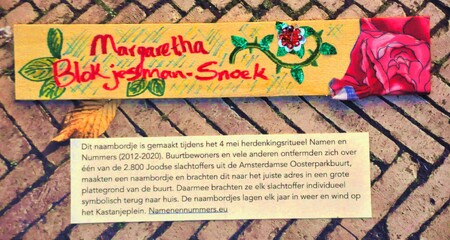 Margaretha
Blokjesman-Snoek
Dit naambordje is gemaakt tijdens het 4 mei herdenkingsritueel Namen en
Nummers (2012-2020). Buurtbewoners en vele anderen ontfermden zich over
één van de 2.800 Joodse slachtoffers uit de Amsterdamse Oosterparkbuurt,
maakten een naambordje en brachten dit naar het juiste adres in een grote
plattegrond van de buurt. Daarmee brachten ze elk slachtoffer individueel
symbolisch terug naar huis. De naambordjes lagen elk jaar in weer en wind op
het Kastanjeplein. Namenennummers.eu